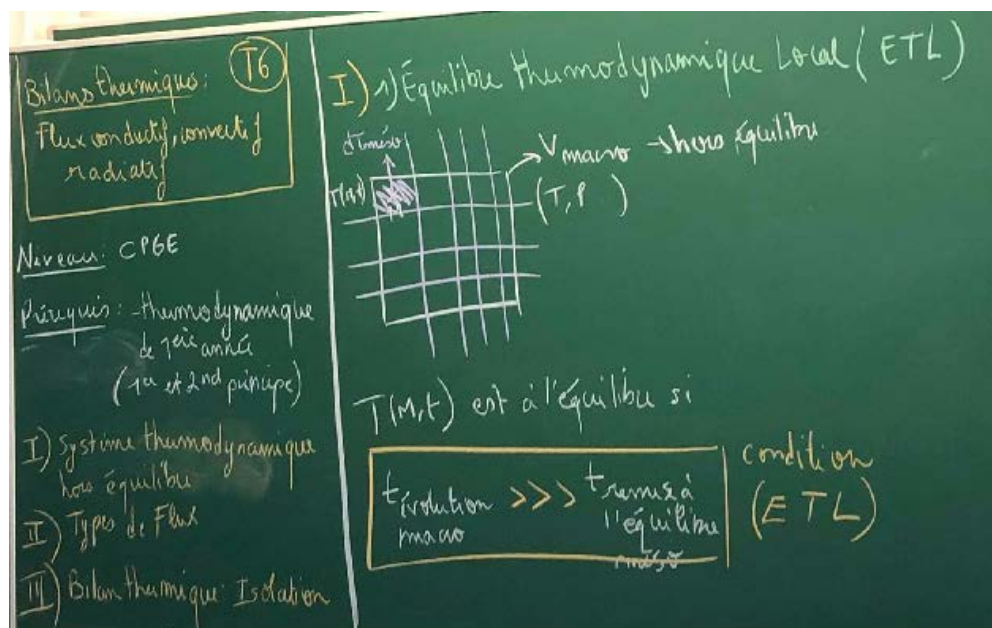 Bilans thermiques:
T6
Flux conductif, convectif
radiatif
Niveau: CPGE
Prérequis: - thermodynamique
de 1ère année
(1er et 2nd principe)
I) Système thermodynamique
hors équilibre
II) Types de Flux
III) Bilan thermique: Isolation
I) 1) Équilibre thermodynamique Local (ETL)
V macro → hors équilibre
T(M,t)
(T, P )
T(M,t) est à l'équilibre si
t évolution >>> t remise à
macro l'équilibre
méso
condition
(ETL)